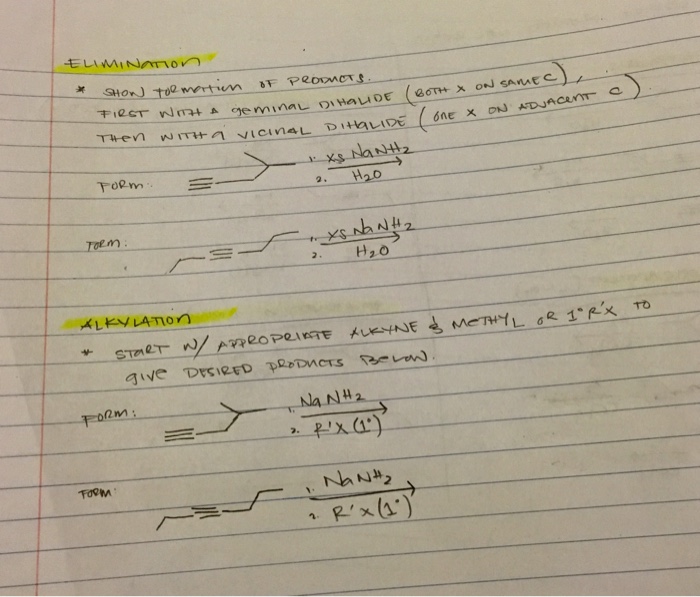 ELIMINATION
* SHOW FORMATION OF PRODUCTS.
FIRST WITH A GEMINAL DIHALIDE (BOTH X ON SAME C),
THEN WITH A VICINAL DIHALIDE (ONE X ON ADJACENT C)
FORM: 1. XS NaNH2
2. H2O
FORM: 1. XS NaNH2
2. H2O
ALKYLATION
* START W/ APPROPRIATE ALKYNE & METHYL OR 1° R'X TO
GIVE DESIRED PRODUCTS BELOW.
FORM: 1. NaNH2
2. R'X (1°)
FORM 1. NaNH2
2. R'X (1°)